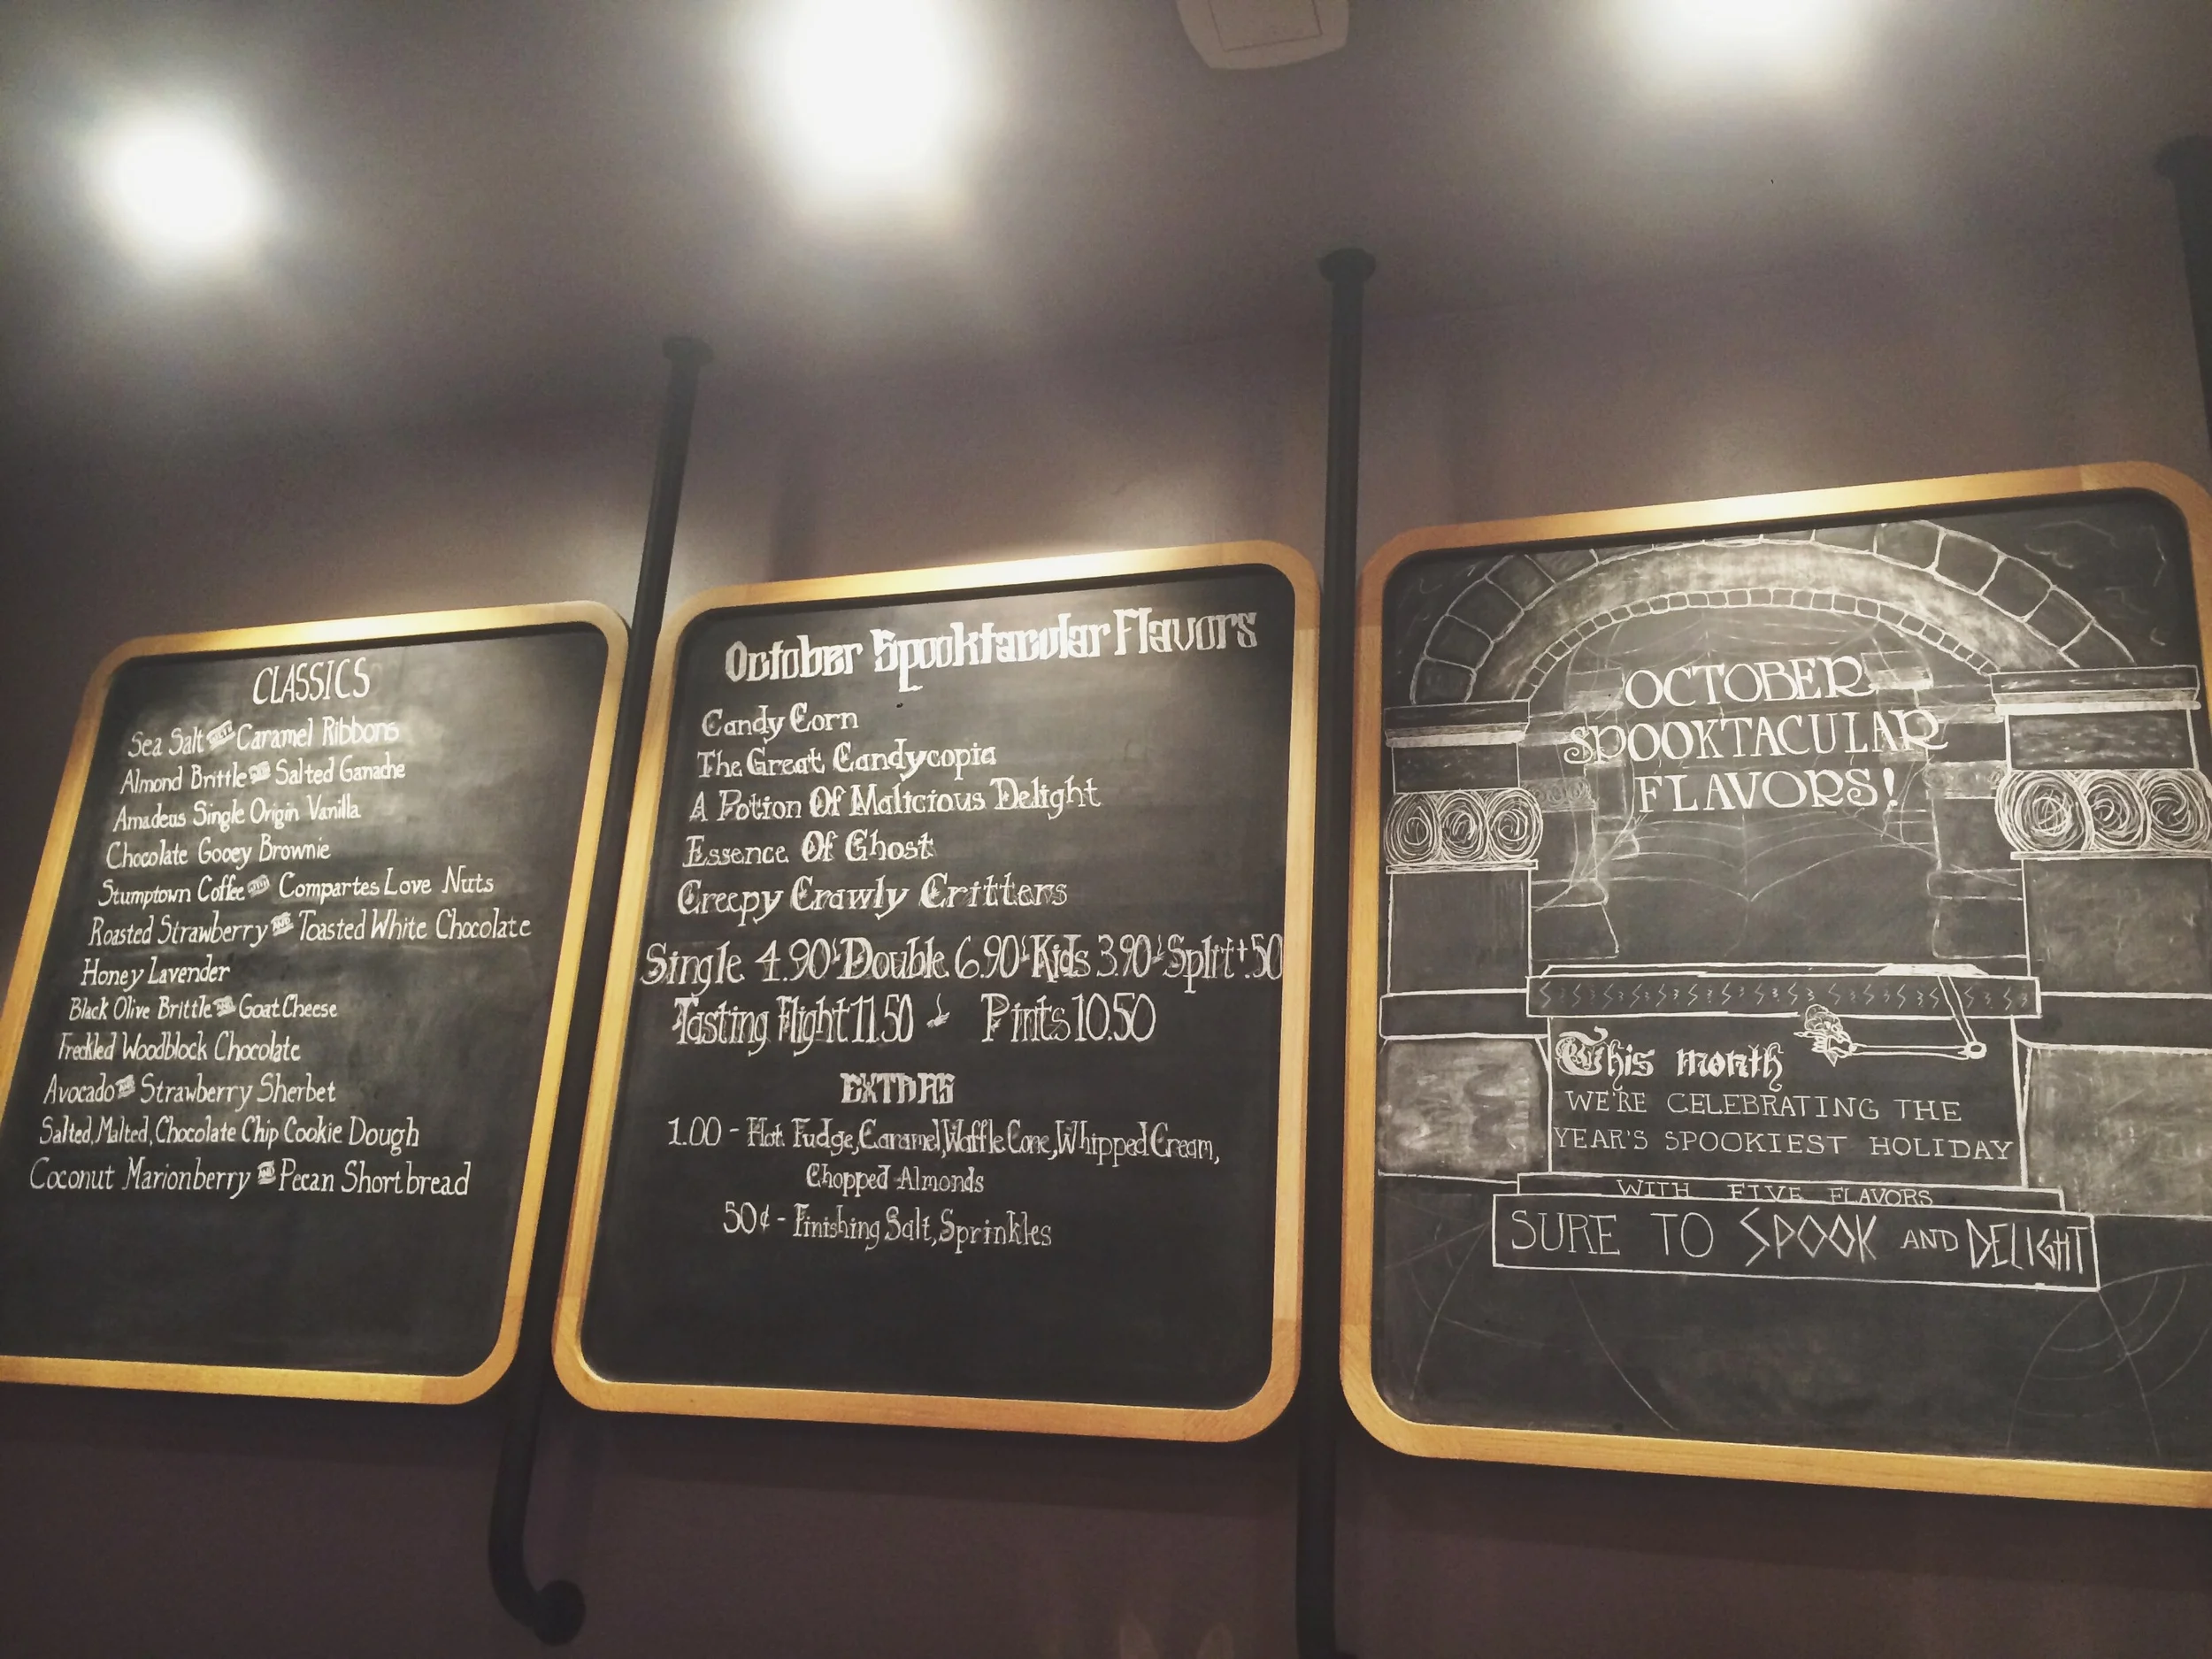 CLASSICS
Sea Salt WITH Caramel Ribbons
Almond Brittle WITH Salted Ganache
Amadeus Single Origin Vanilla
Chocolate Gooey Brownie
Stumptown Coffee WITH Compartes Love Nuts
Roasted Strawberry AND Toasted White Chocolate
Honey Lavender
Black Olive Brittle AND Goat Cheese
Freckled Woodblock Chocolate
Avocado AND Strawberry Sherbet
Salted, Malted, Chocolate Chip Cookie Dough
Coconut Marionberry AND Pecan Shortbread
October Spooktacular Flavors
Candy Corn
The Great Candycopia
A Potion Of Malicious Delight
Essence Of Ghost
Creepy Crawly Critters
Single 4.90 Double 6.90 Kids 3.90 Split +.50
Tasting Flight 11.50 Pints 10.50
EXTRAS
1.00 - Hot Fudge, Caramel, Waffle Cone, Whipped Cream,
Chopped Almonds
50¢ - Finishing Salt, Sprinkles
OCTOBER
SPOOKTACULAR
FLAVORS!
This month
WE'RE CELEBRATING THE
YEAR'S SPOOKIEST HOLIDAY
WITH FIVE FLAVORS
SURE TO SPOOK AND DELIGHT